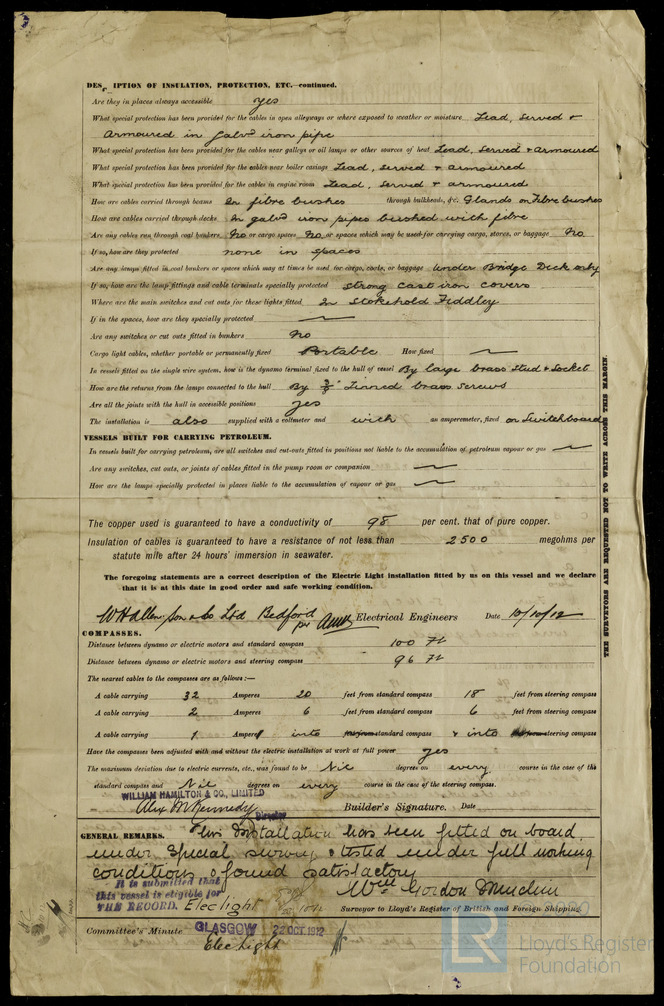 DES IPTION OF INSULATION, PROTECTION, ETC.—continued.
Are they in places always accessible yes
What special protection has been provided for the cables in open alleyways or where exposed to weather or moisture Lead, served +
Armoured in galvd iron pipe
What special protection has been provided for the cables near galleys or oil lamps or other sources of heat Lead, served + armoured
What special protection has been provided for the cables near boiler casings Lead, served + armoured
What special protection has been provided for the cables in engine room Lead, served + armoured
How are cables carried through beams In fibre bushes through bulkheads, &c. Glands or Fibre bushes
How are cables carried through decks In galvd iron pipes bushed with fibre
Are any cables run through coal bunkers No or cargo spaces No or spaces which may be used for carrying cargo, stores, or baggage No
If so, how are they protected none in spaces
Are any lamps fitted in coal bunkers or spaces which may at times be used for cargo, coals, or baggage Under Bridge Deck only
If so, how are the lamp fittings and cable terminals specially protected strong cast iron covers
Where are the main switches and cut outs for these lights fitted In Stokehold Fiddley
If in the spaces, how are they specially protected
Are any switches or cut outs fitted in bunkers No
Cargo light cables, whether portable or permanently fixed Portable How fixed
In vessels fitted on the single wire system, how is the dynamo terminal fixed to the hull of vessel By large brass stud + Socket
How are the returns from the lamps connected to the hull By 3/8" Tinned brass screws
Are all the joints with the hull in accessible positions yes
The installation is also supplied with a voltmeter and with an amperemeter, fixed on Switchboard
VESSELS BUILT FOR CARRYING PETROLEUM.
In vessels built for carrying petroleum, are all switches and cut-outs fitted in positions not liable to the accumulation of petroleum vapour or gas
Are any switches, cut outs, or joints of cables fitted in the pump room or companion
How are the lamps specially protected in places liable to the accumulation of vapour or gas
The copper used is guaranteed to have a conductivity of 98 per cent. that of pure copper.
Insulation of cables is guaranteed to have a resistance of not less than 2500 megohms per
statute mile after 24 hours' immersion in seawater.
The foregoing statements are a correct description of the Electric Light installation fitted by us on this vessel and we declare
that it is at this date in good order and safe working condition.
W H Allen, Son & Co Ltd Bedford per Electrical Engineers Date 10/10/12
COMPASSES.
Distance between dynamo or electric motors and standard compass 100 ft
Distance between dynamo or electric motors and steering compass 96 ft
The nearest cables to the compasses are as follows:—
A cable carrying 32 Amperes 20 feet from standard compass 18 feet from steering compass
A cable carrying 2 Amperes 6 feet from standard compass 6 feet from steering compass
A cable carrying 1 Ampere into feet from standard compass & into feet from steering compass
Have the compasses been adjusted with and without the electric installation at work at full power yes
The maximum deviation due to electric currents, etc., was found to be Nil degrees on every course in the case of the
standard compass and Nil degrees on every course in the case of the steering compass.
WILLIAM HAMILTON & CO., LIMITED
Alex McKennedy Director Builder's Signature. Date
GENERAL REMARKS. This Installation has been fitted on board
under special survey, & tested under full working
conditions & found satisfactory
It is submitted that
this vessel is eligible for
THE RECORD. Elec light
Wm Gordon
Surveyor to Lloyd's Register of British and Foreign Shipping.
Committee's Minute GLASGOW 22 OCT. 1912
Elec Light
THE SURVEYORS ARE REQUESTED NOT TO WRITE ACROSS THIS MARGIN.
LR Lloyd's Register
Foundation